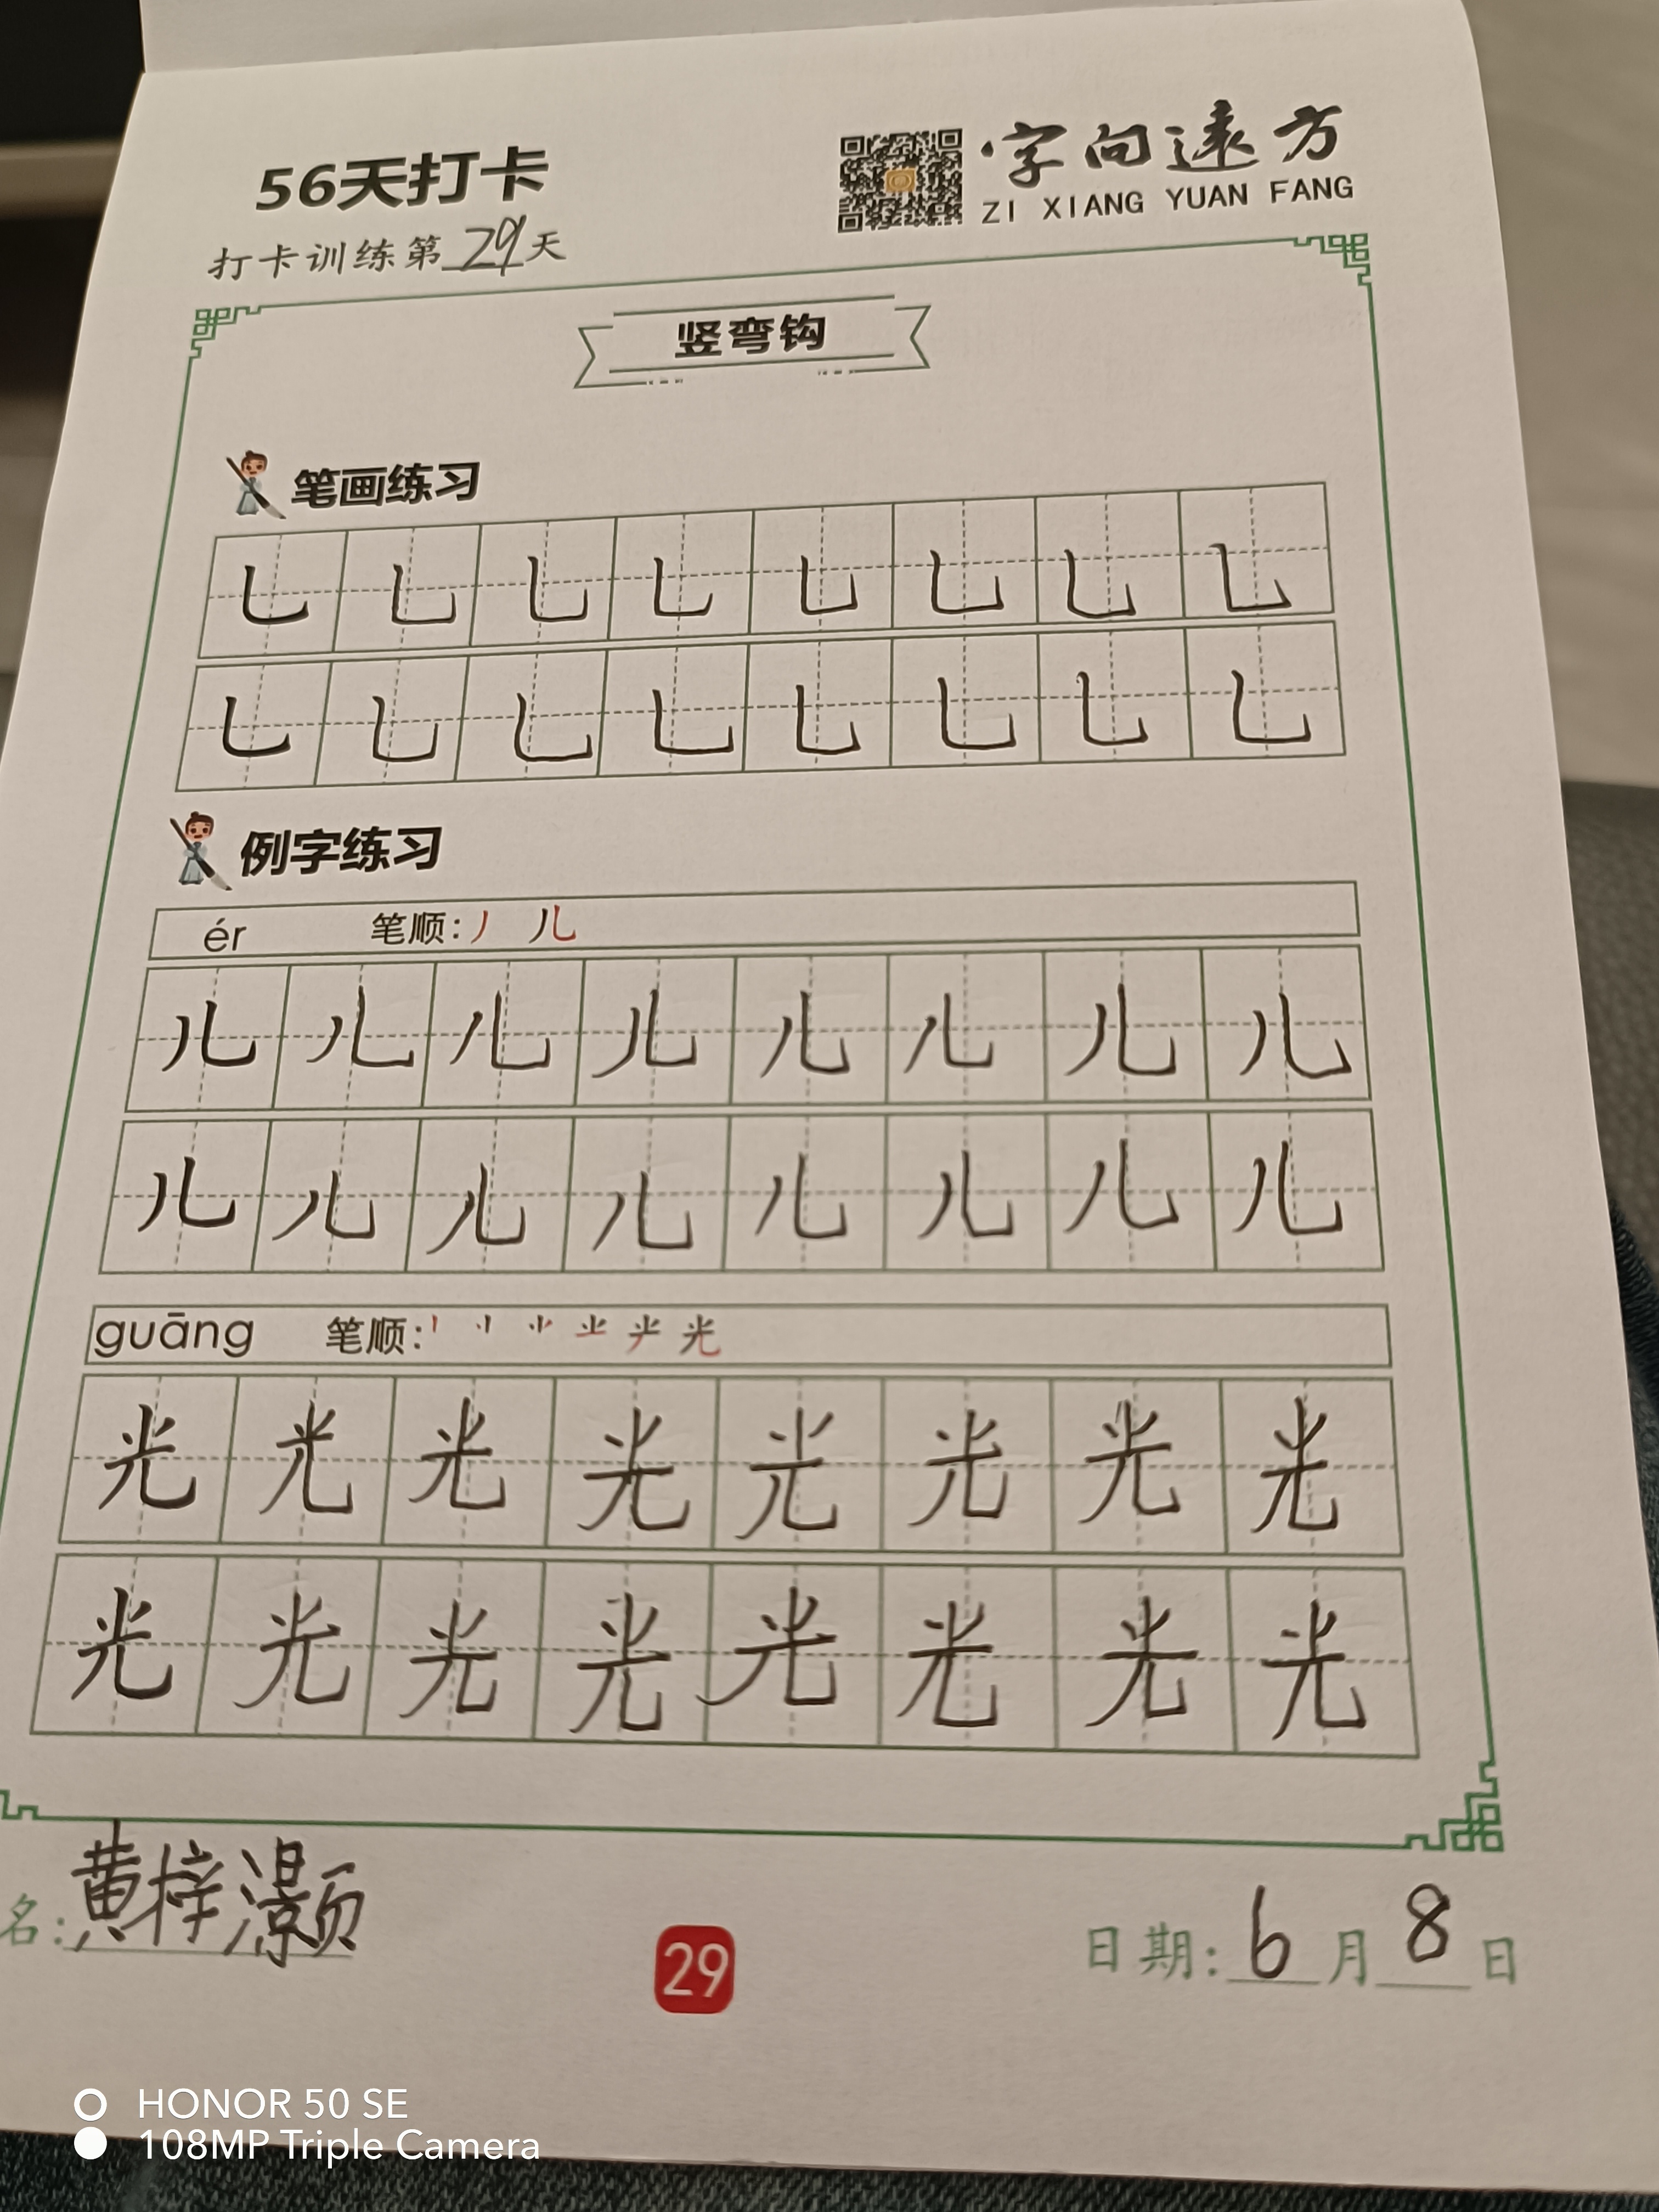 56天打卡
字向遠方
ZI XIANG YUAN FANG
打卡训练第29天
竖弯钩
笔画练习
乚 乚 乚 乚 乚 乚 乚 乚
乚 乚 乚 乚 乚 乚 乚 乚
例字练习
ér 笔顺:丿 儿
儿 儿 儿 儿 儿 儿 儿 儿
儿 儿 儿 儿 儿 儿 儿 儿
guāng 笔顺: 光
光 光 光 光 光 光 光 光
光 光 光 光 光 光 光 光
名:黄梓灏
29
日期:6月8日
HONOR 50 SE
108MP Triple Camera